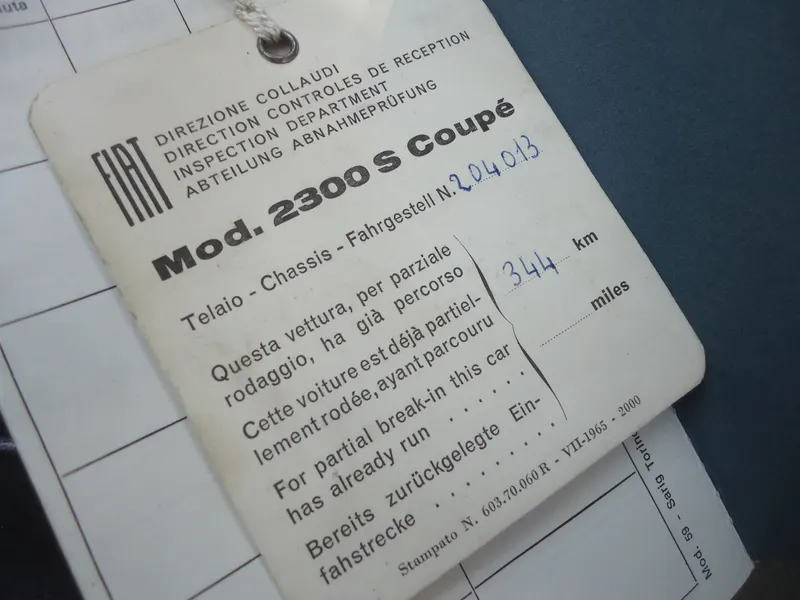 FIAT
DIREZIONE COLLAUDI
DIRECTION CONTROLES DE RECEPTION
INSPECTION DEPARTMENT
ABTEILUNG ABNAHMEPRÜFUNG
Mod. 2300 S Coupé
Telaio - Chassis - Fahrgestell N. 204013
Questa vettura, per parziale
rodaggio, ha già percorso
Cette voiture est déjà partiel-
lement rodée, ayant parcouru
For partial break-in this car
has already run . . . . . .
Bereits zurückgelegte Ein-
fahstrecke . . . . . . . . .
344 km
miles
Stampato N. 603.70.060 R - VII-1965 - 2000
Mod. 59 - Sarig Torino